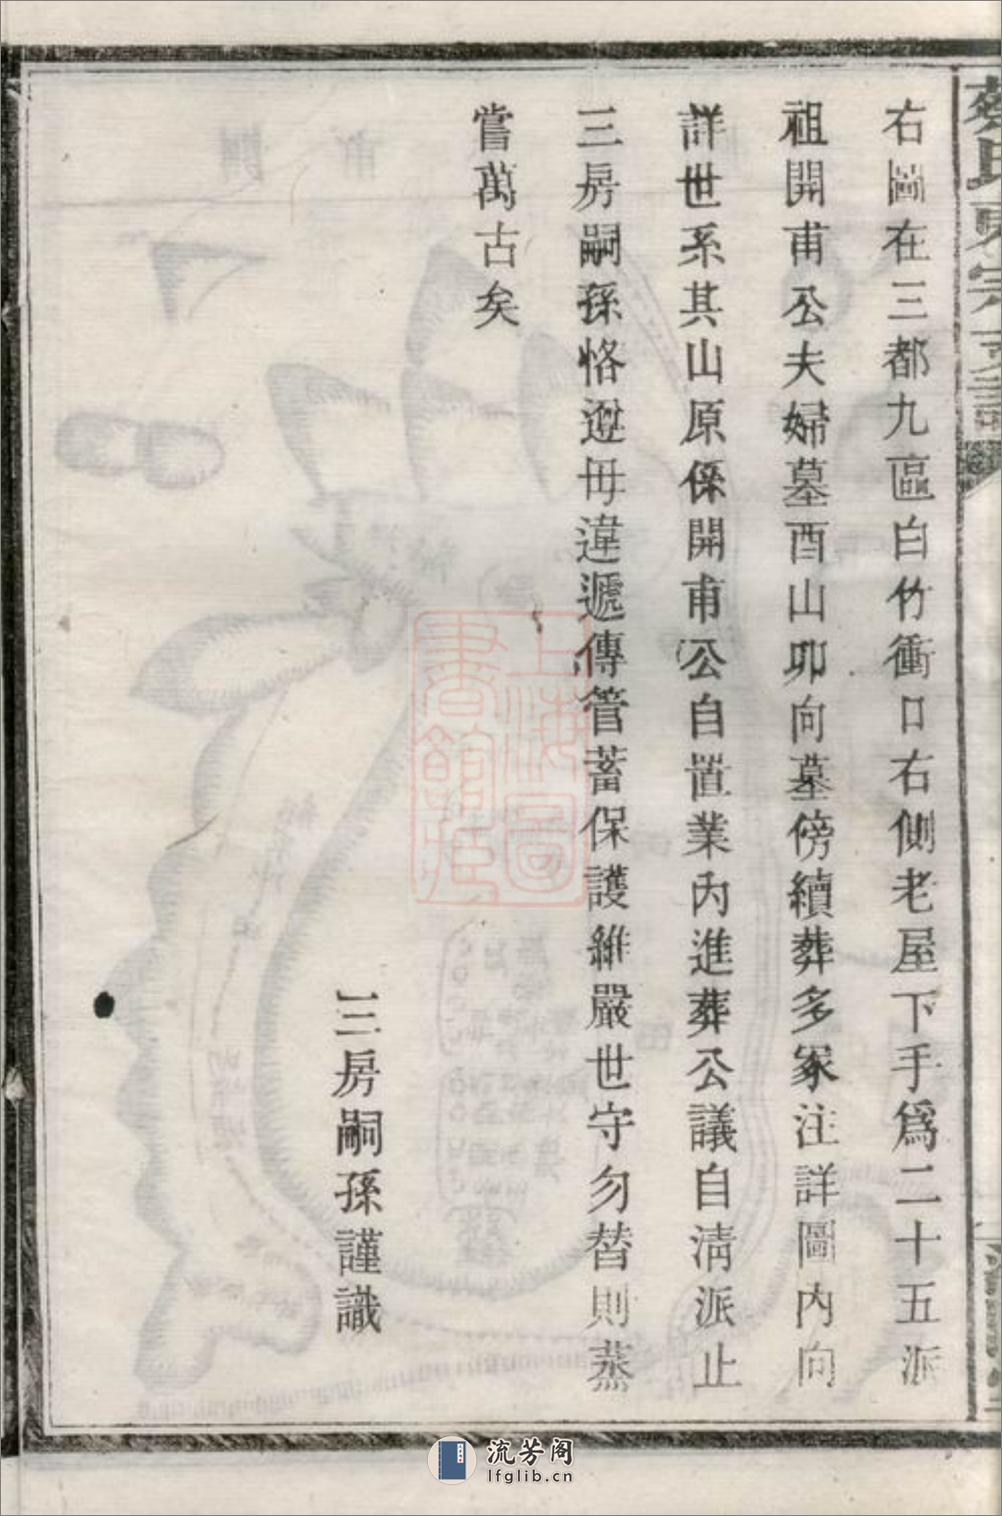 右圖在三都九區白竹衝口右側老屋下手爲二十五派
祖開甫公夫婦墓酉山卯向墓傍續葬多冢注詳圖內向
詳世系其山原係開甫公自置業內進葬公議自淸派止
三房嗣孫恪遵毋違遞傳管蓄保護維嚴世守勿替則蒸
嘗萬古矣
三房嗣孫謹識
上海圖書館藏
流芳阁
lfglib.cn